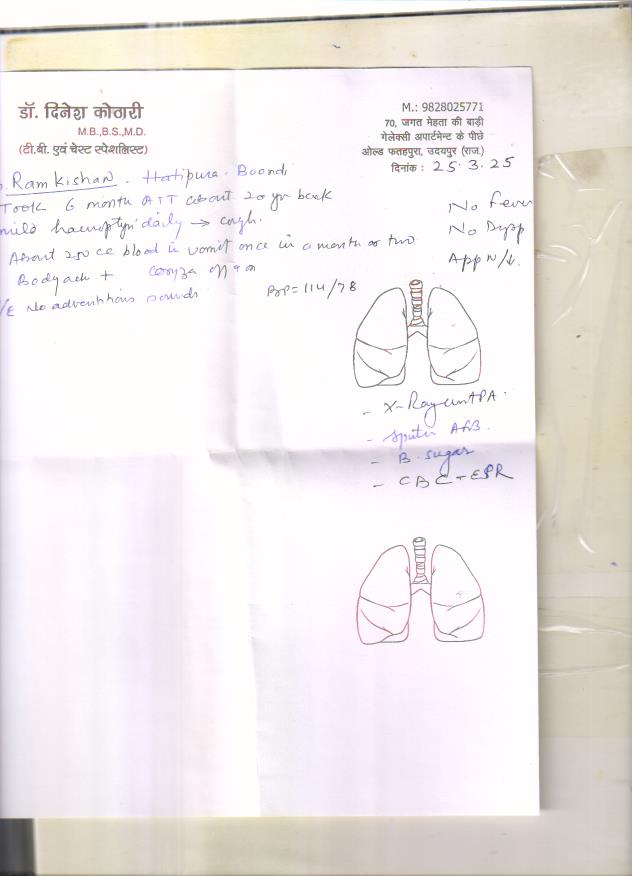 डॉ. दिनेश कोठारी
M.B.,B.S.,M.D.
(टी.बी. एवं चेस्ट स्पेशलिस्ट)
M.: 9828025771
70, जगत मेहता की बाड़ी
गेलेक्सी अपार्टमेन्ट के पीछे
ओल्ड फतहपुरा, उदयपुर (राज.)
दिनांक : 25.3.25
Ram Kishan. Hatipura. Boondi
Took 6 month ATT about 20 yr back
mild haemoptysis daily → cough.
About 250 cc blood in vomit once in a month or two
Bodyach + coryza off & on
No adventitious sounds
BP = 114/78
No Fever
No Dysp
App N/↓.
- X-Ray chest PA.
- Sputum AFB.
- B. sugar
- CBC + ESR